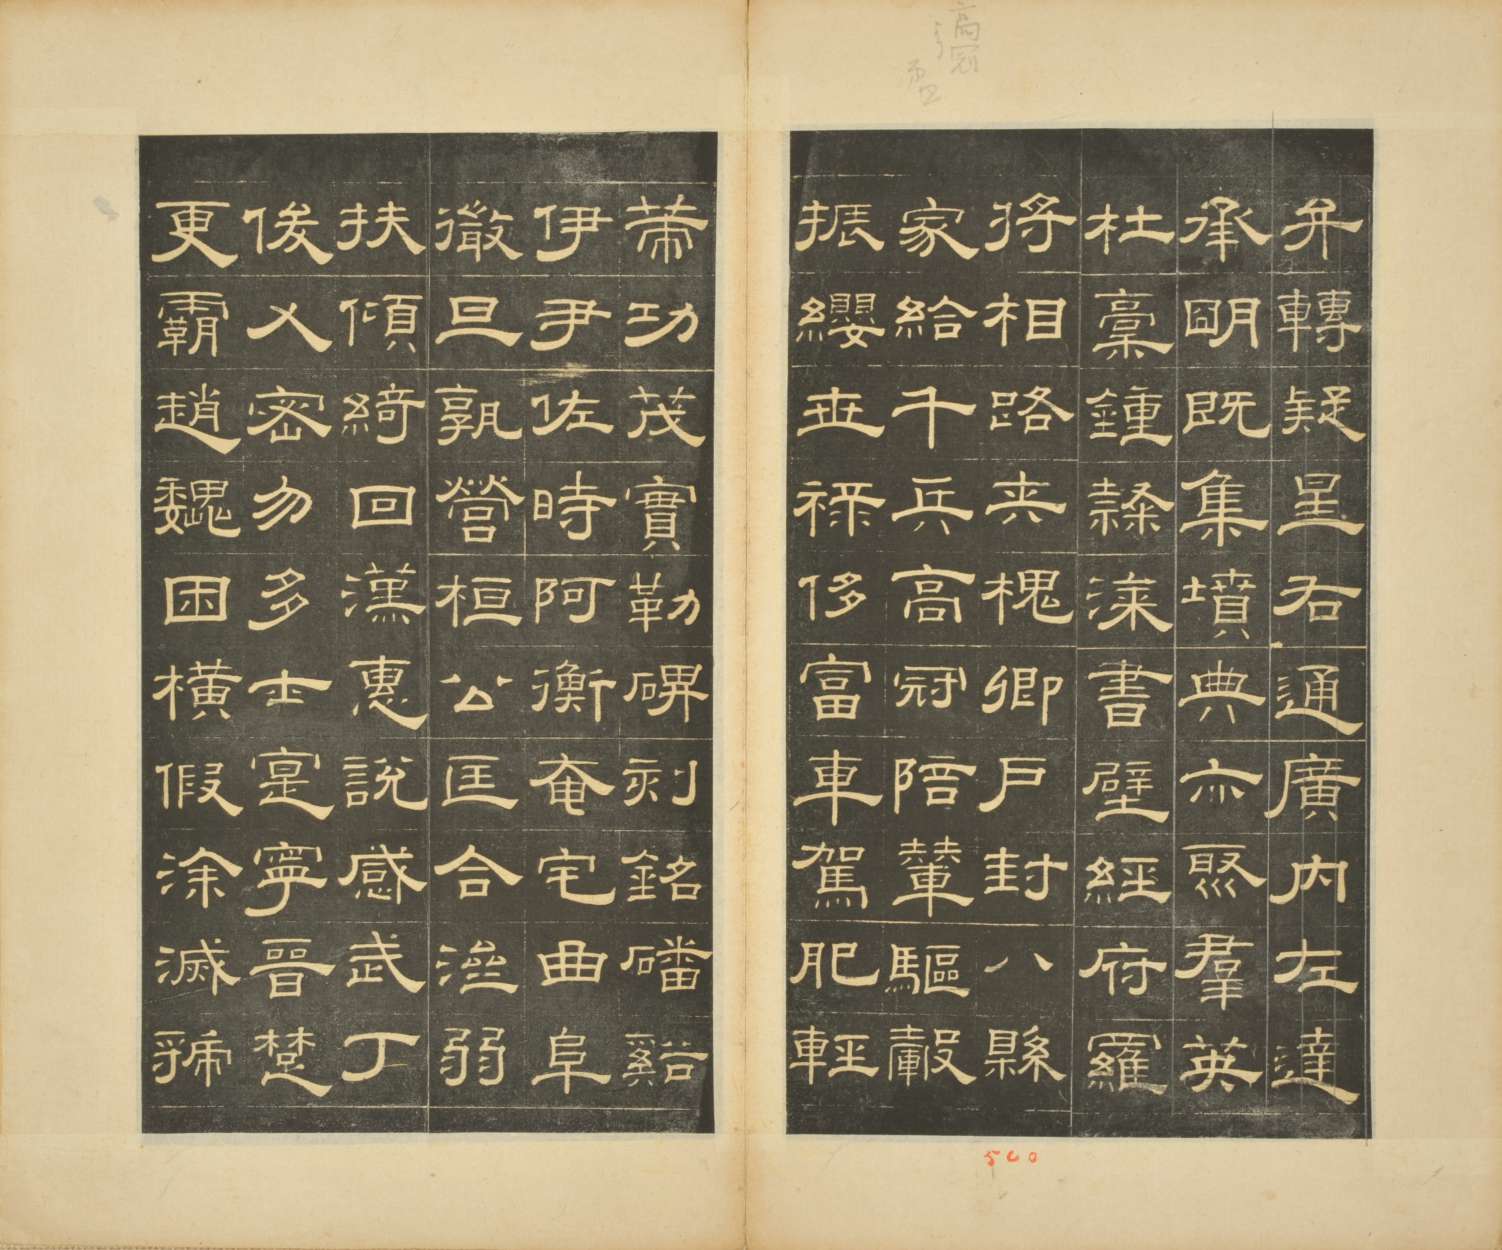 弁轉疑星右通廣内左達
承朙既集墳典亦聚羣英
杜稾鍾隸漆書壁經府羅
將相路夾槐卿戶封八縣
家給千兵高冠陪輦驅轂
振纓世祿侈富車駕肥輕
策功茂實勒碑刻銘磻谿
伊尹佐時阿衡奄宅曲阜
微旦孰營桓公匡合濟弱
扶傾綺回漢惠說感武丁
俊乂密勿多士寔寧晉楚
更霸趙魏困橫假涂滅虢